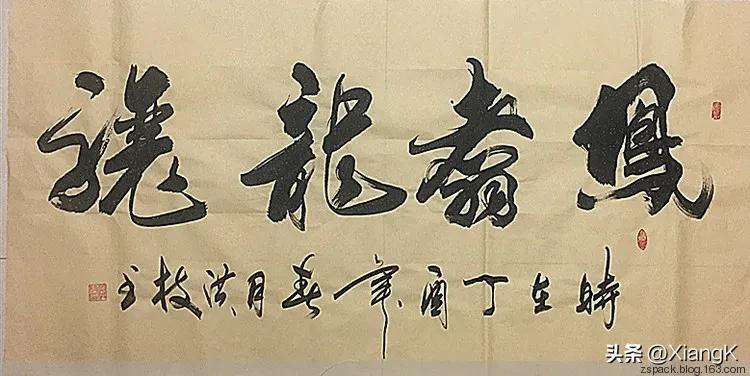 鳳翥龍驤
時在丁酉年春月洪枝书
头条 @XiangK
zspack.blog.163.com